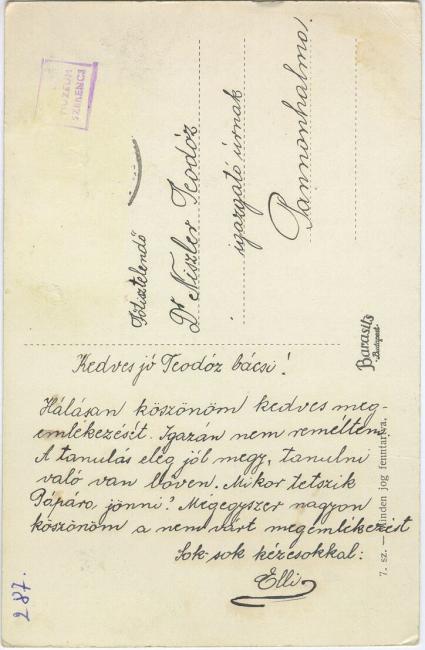 MUZEUM
SZERENCS
Főtisztelendő
Dr Niszler Teodóz
igazgató úrnak
Pannonhalma.
Barasits
Budapest
Kedves jó Teodóz bácsi!
Hálásan köszönöm kedves meg-
emlékezését. Igazán nem reméltem.
A tanulás elég jól megy, tanulni
való van bőven. Mikor tetszik
Pápára jönni? Mégegyszer nagyon
köszönöm a nem várt megemlékezést
Sok-sok kézcsokkal:
Elli
7. sz. — Minden jog fenntartva.
287.